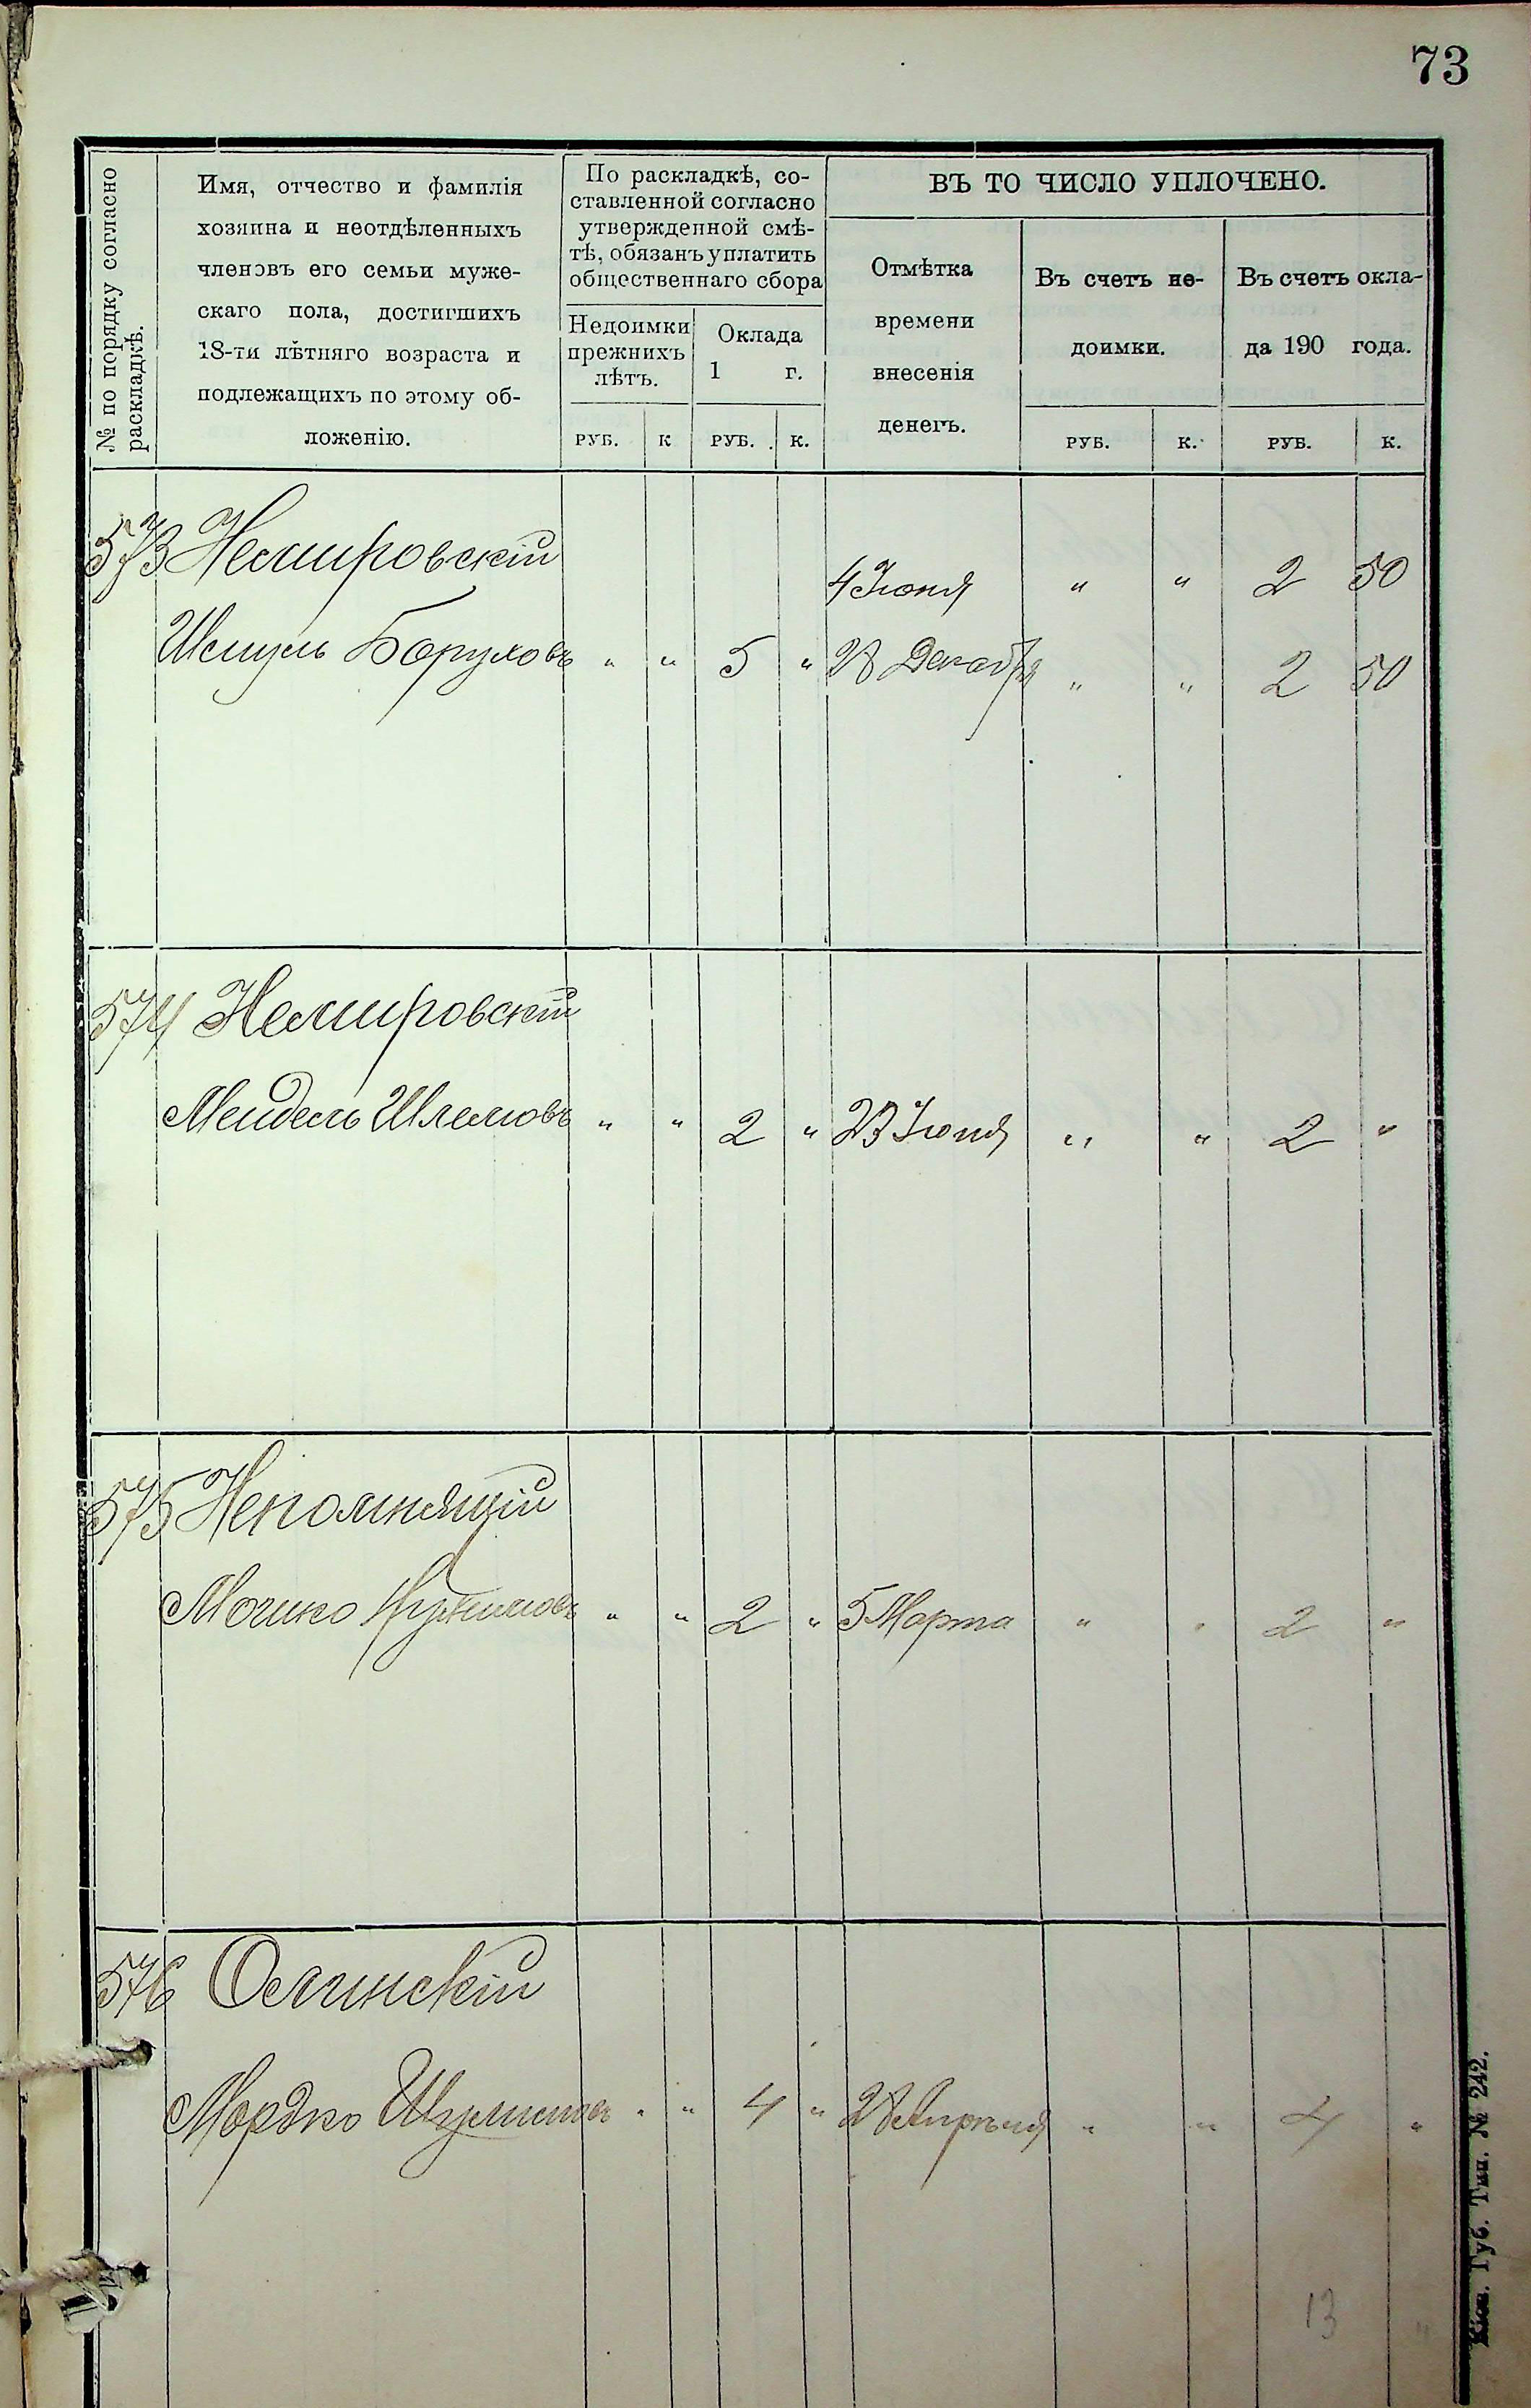 73
№ по порядку согласно
раскладкѣ.
Имя, отчество и фамилія
хозяина и неотдѣленныхъ
членовъ его семьи муже-
скаго пола, достигшихъ
18-ти лѣтняго возраста и
подлежащихъ по этому об-
ложенію.
По раскладкѣ, со-
ставленной согласно
утвержденной смѣ-
тѣ, обязанъ уплатить
общественнаго сбора
Недоимки
прежнихъ
лѣтъ.
Оклада
1 г.
ВЪ ТО ЧИСЛО УПЛОЧЕНО.
Отмѣтка
времени
внесенія
денегъ.
Въ счетъ не-
доимки.
Въ счетъ окла-
да 190 года.
РУБ. К РУБ. К. РУБ. К. РУБ. К.
573 Немировскій
4 Іюня " " 2 50
Шмуль Боруховъ " " 5 " 28 Декабря " " 2 50
574 Немировскій
Мендель Шлемовъ " " 2 " 23 Іюня " " 2 "
575 Непомнящій
Мошко " " 2 " 5 Марта " " 2 "
576
Мордко " " 4 " 28 Апрѣля " " 4 "
13 "
Кіев. Губ. Тип. № 242.